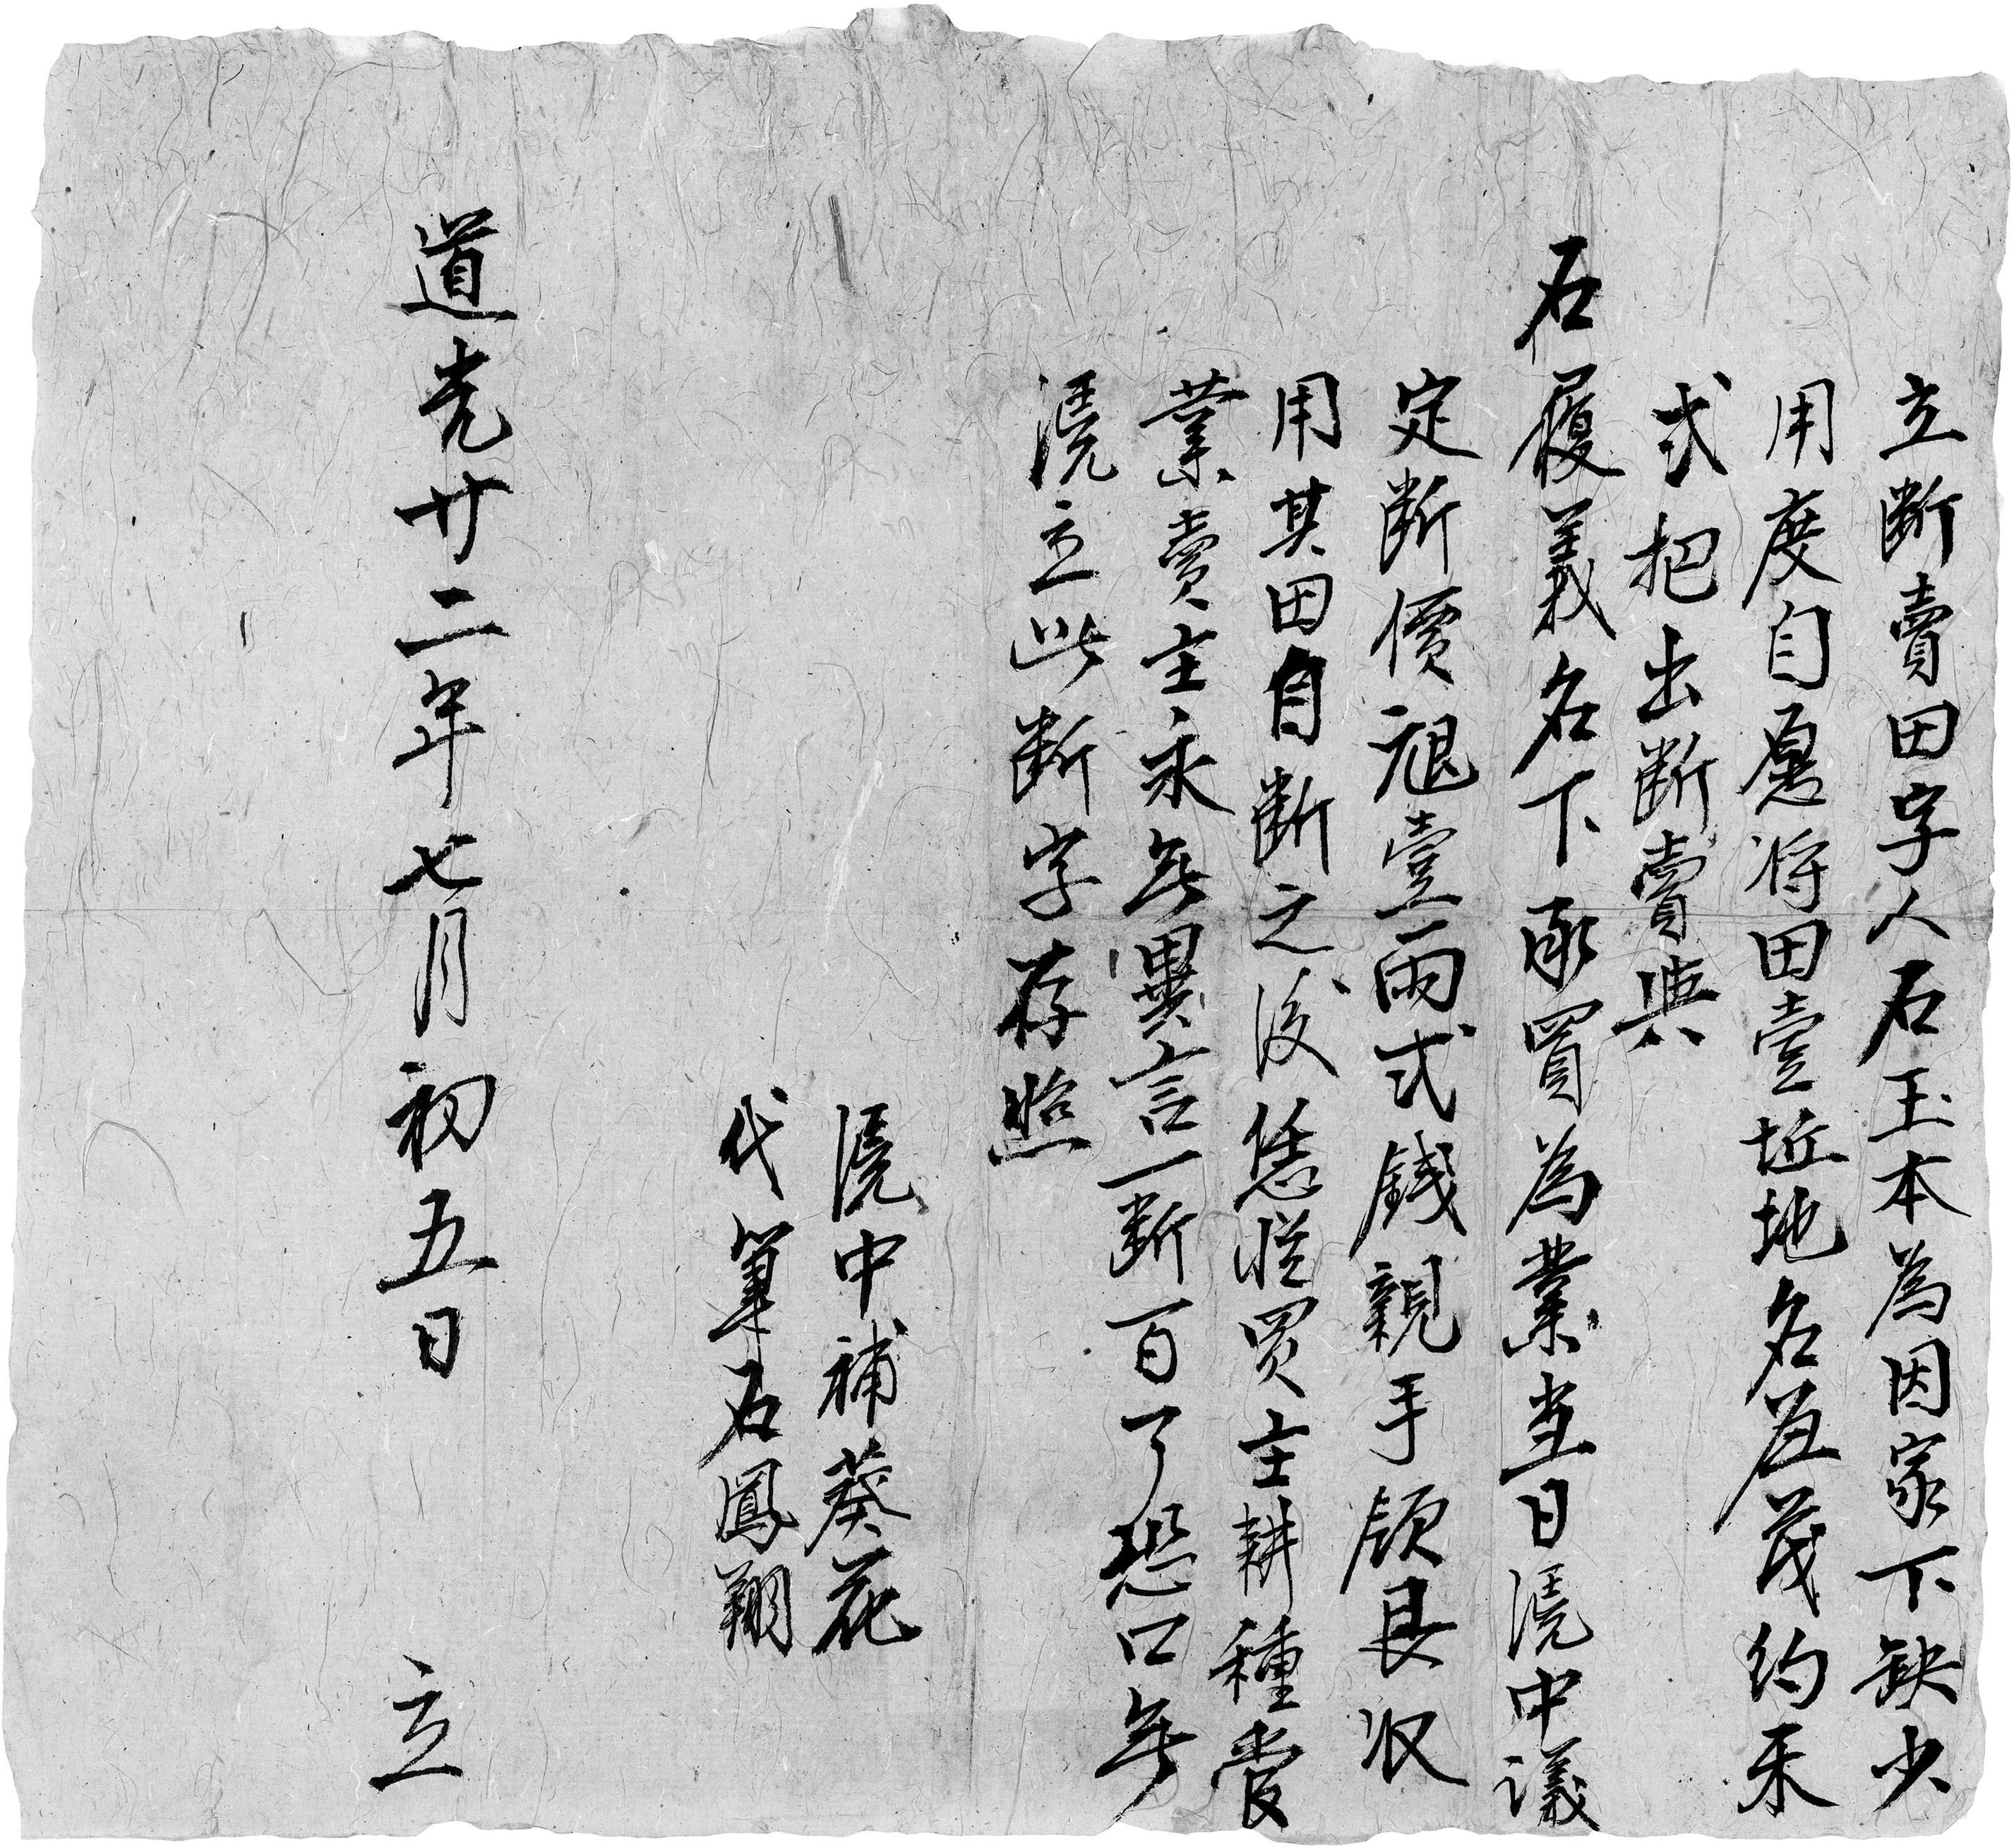 立断賣田字人石玉本為因家下缺少
用度自愿将田壹坵地名茂約禾
弍把出断賣與
石履義名下承買為業當日憑中議
定断價銀壹両弍錢親手領艮收
用其田自断之後恁從買主耕種管
業賣主永無異言一断百了恐口無
憑立此断字存照
憑中補葵花
代筆石鳳翔
道光廿二年七月初五日 立